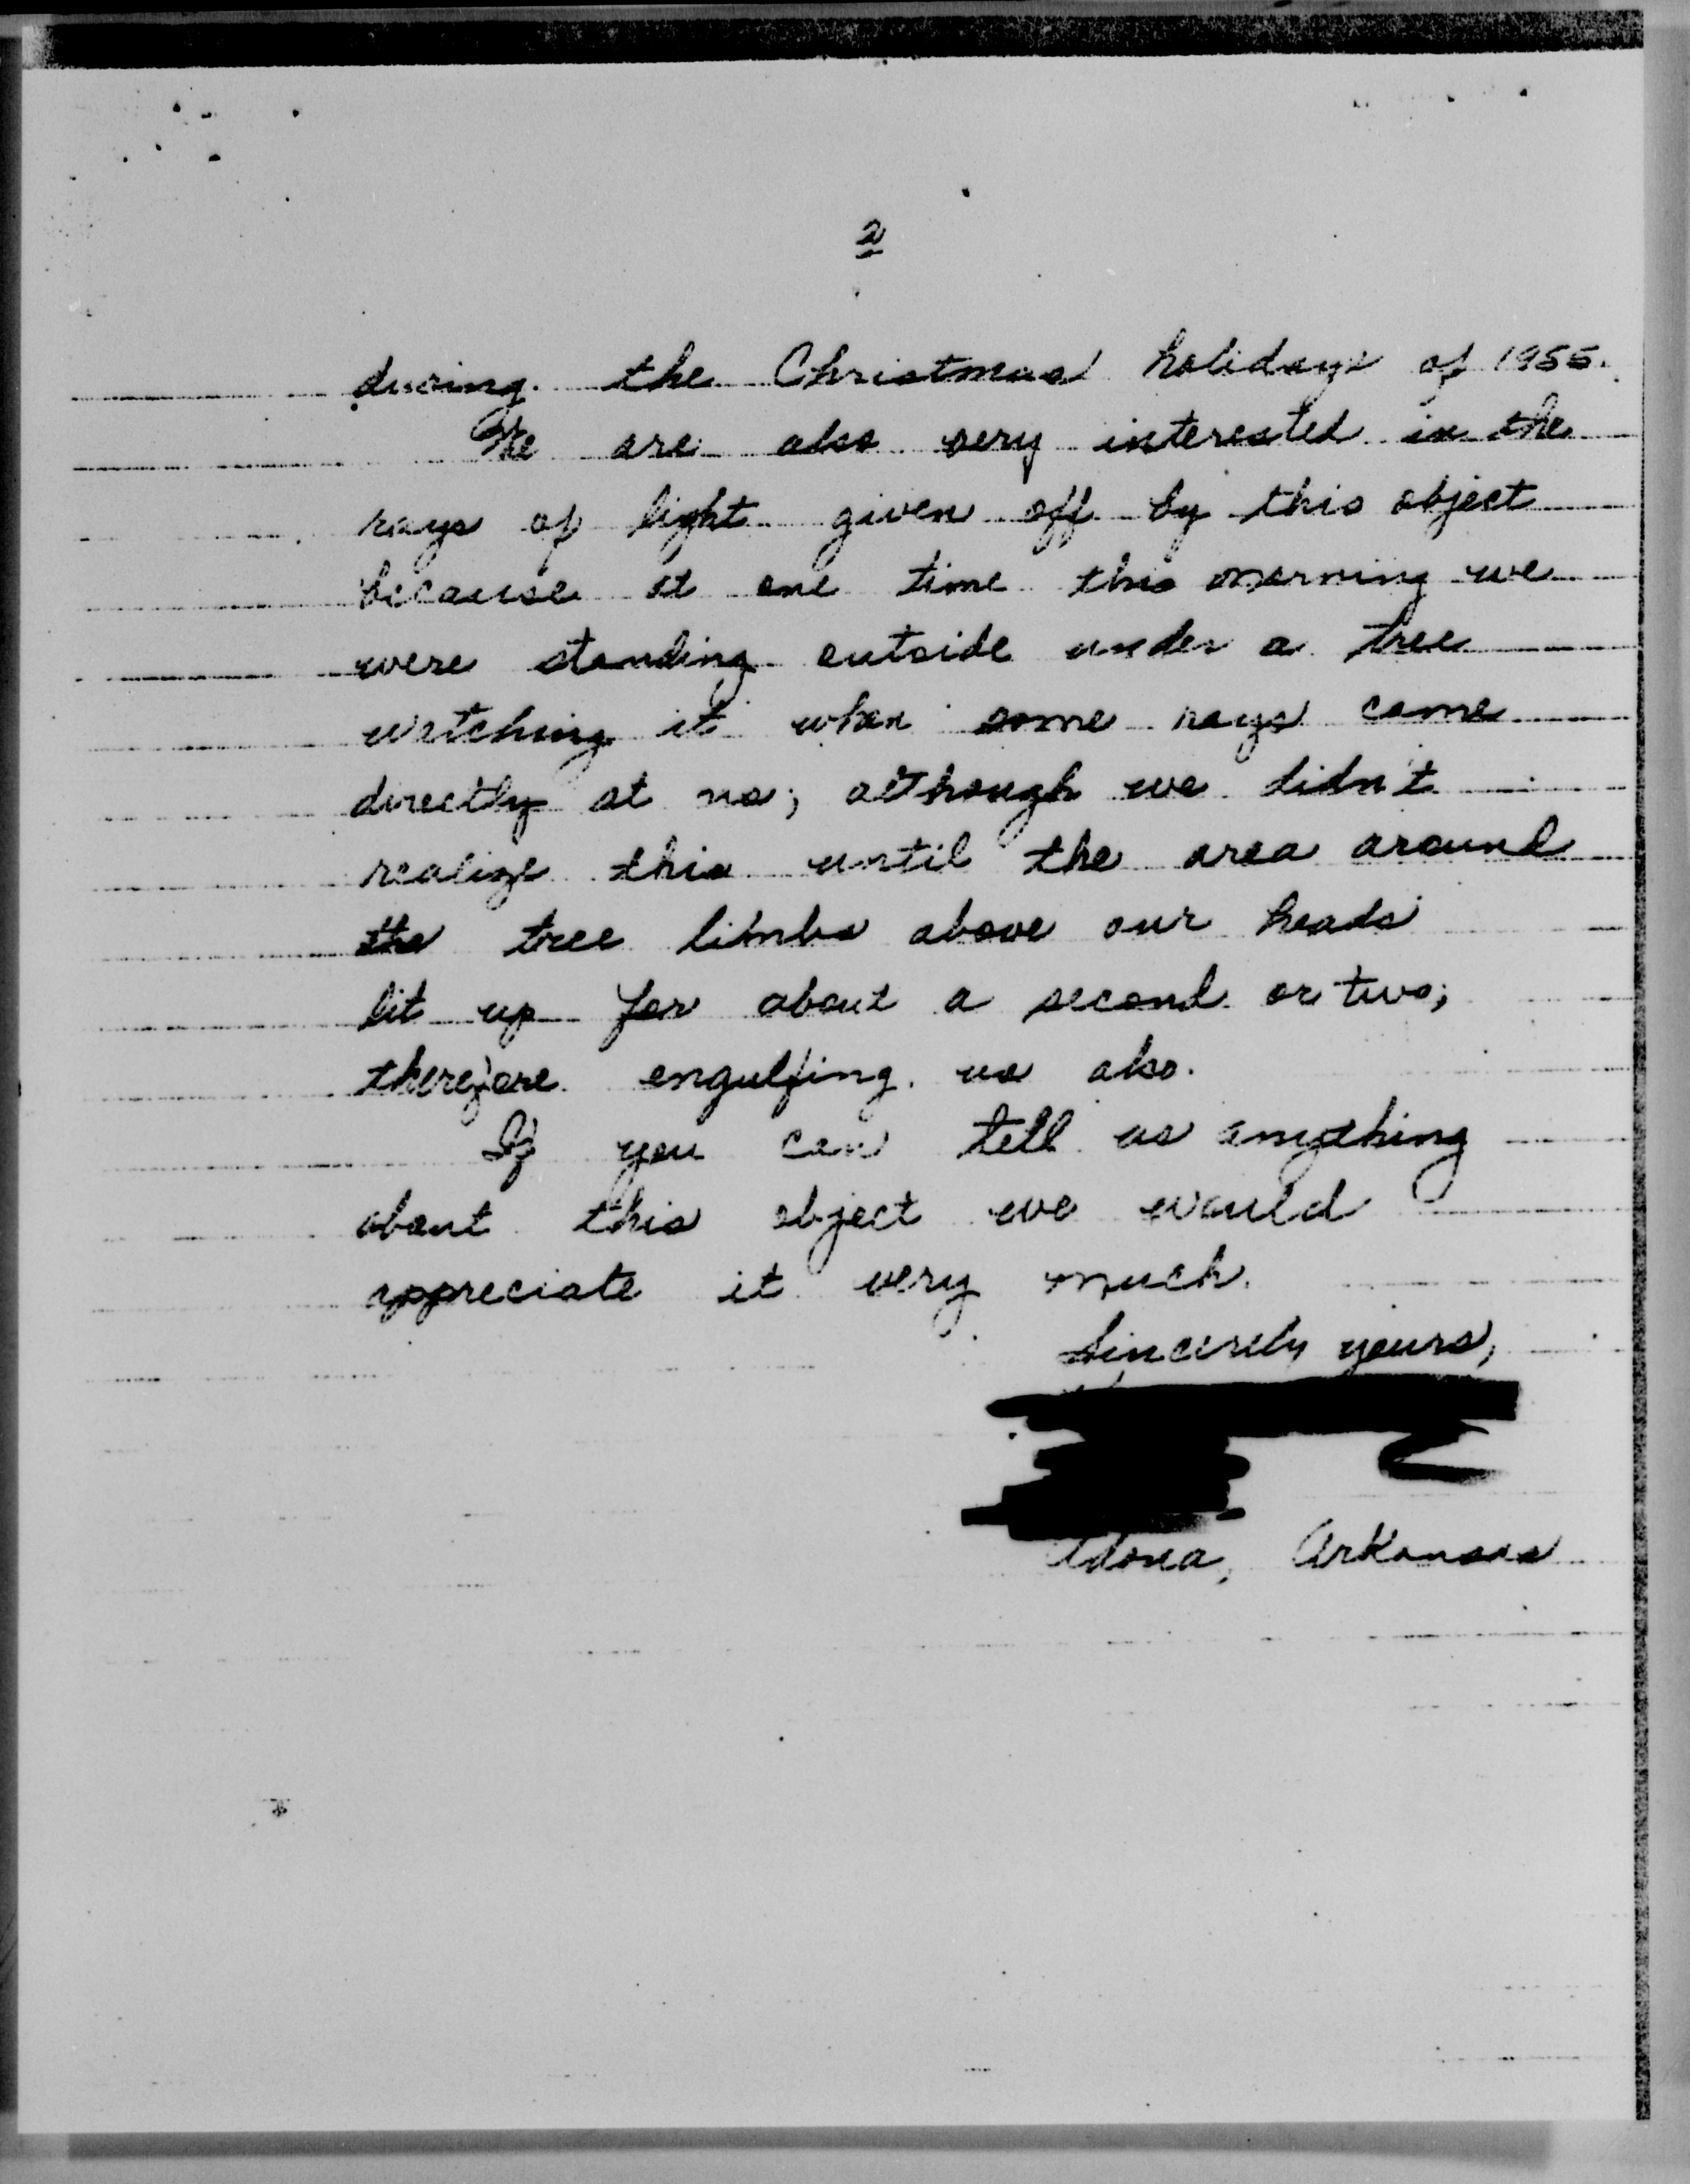 2
during the Christmas holidays of 1955.
We are also very interested in the
rays of light given off by this object
because at one time this morning we
were standing outside under a tree
watching it when some rays came
directly at us; although we didn't
realize this until the area around
the tree limbs above our heads
lit up for about a second or two;
therefore engulfing us also.
If you can tell us anything
about this object we would
appreciate it very much.
Sincerely yours,
Adona, Arkansas